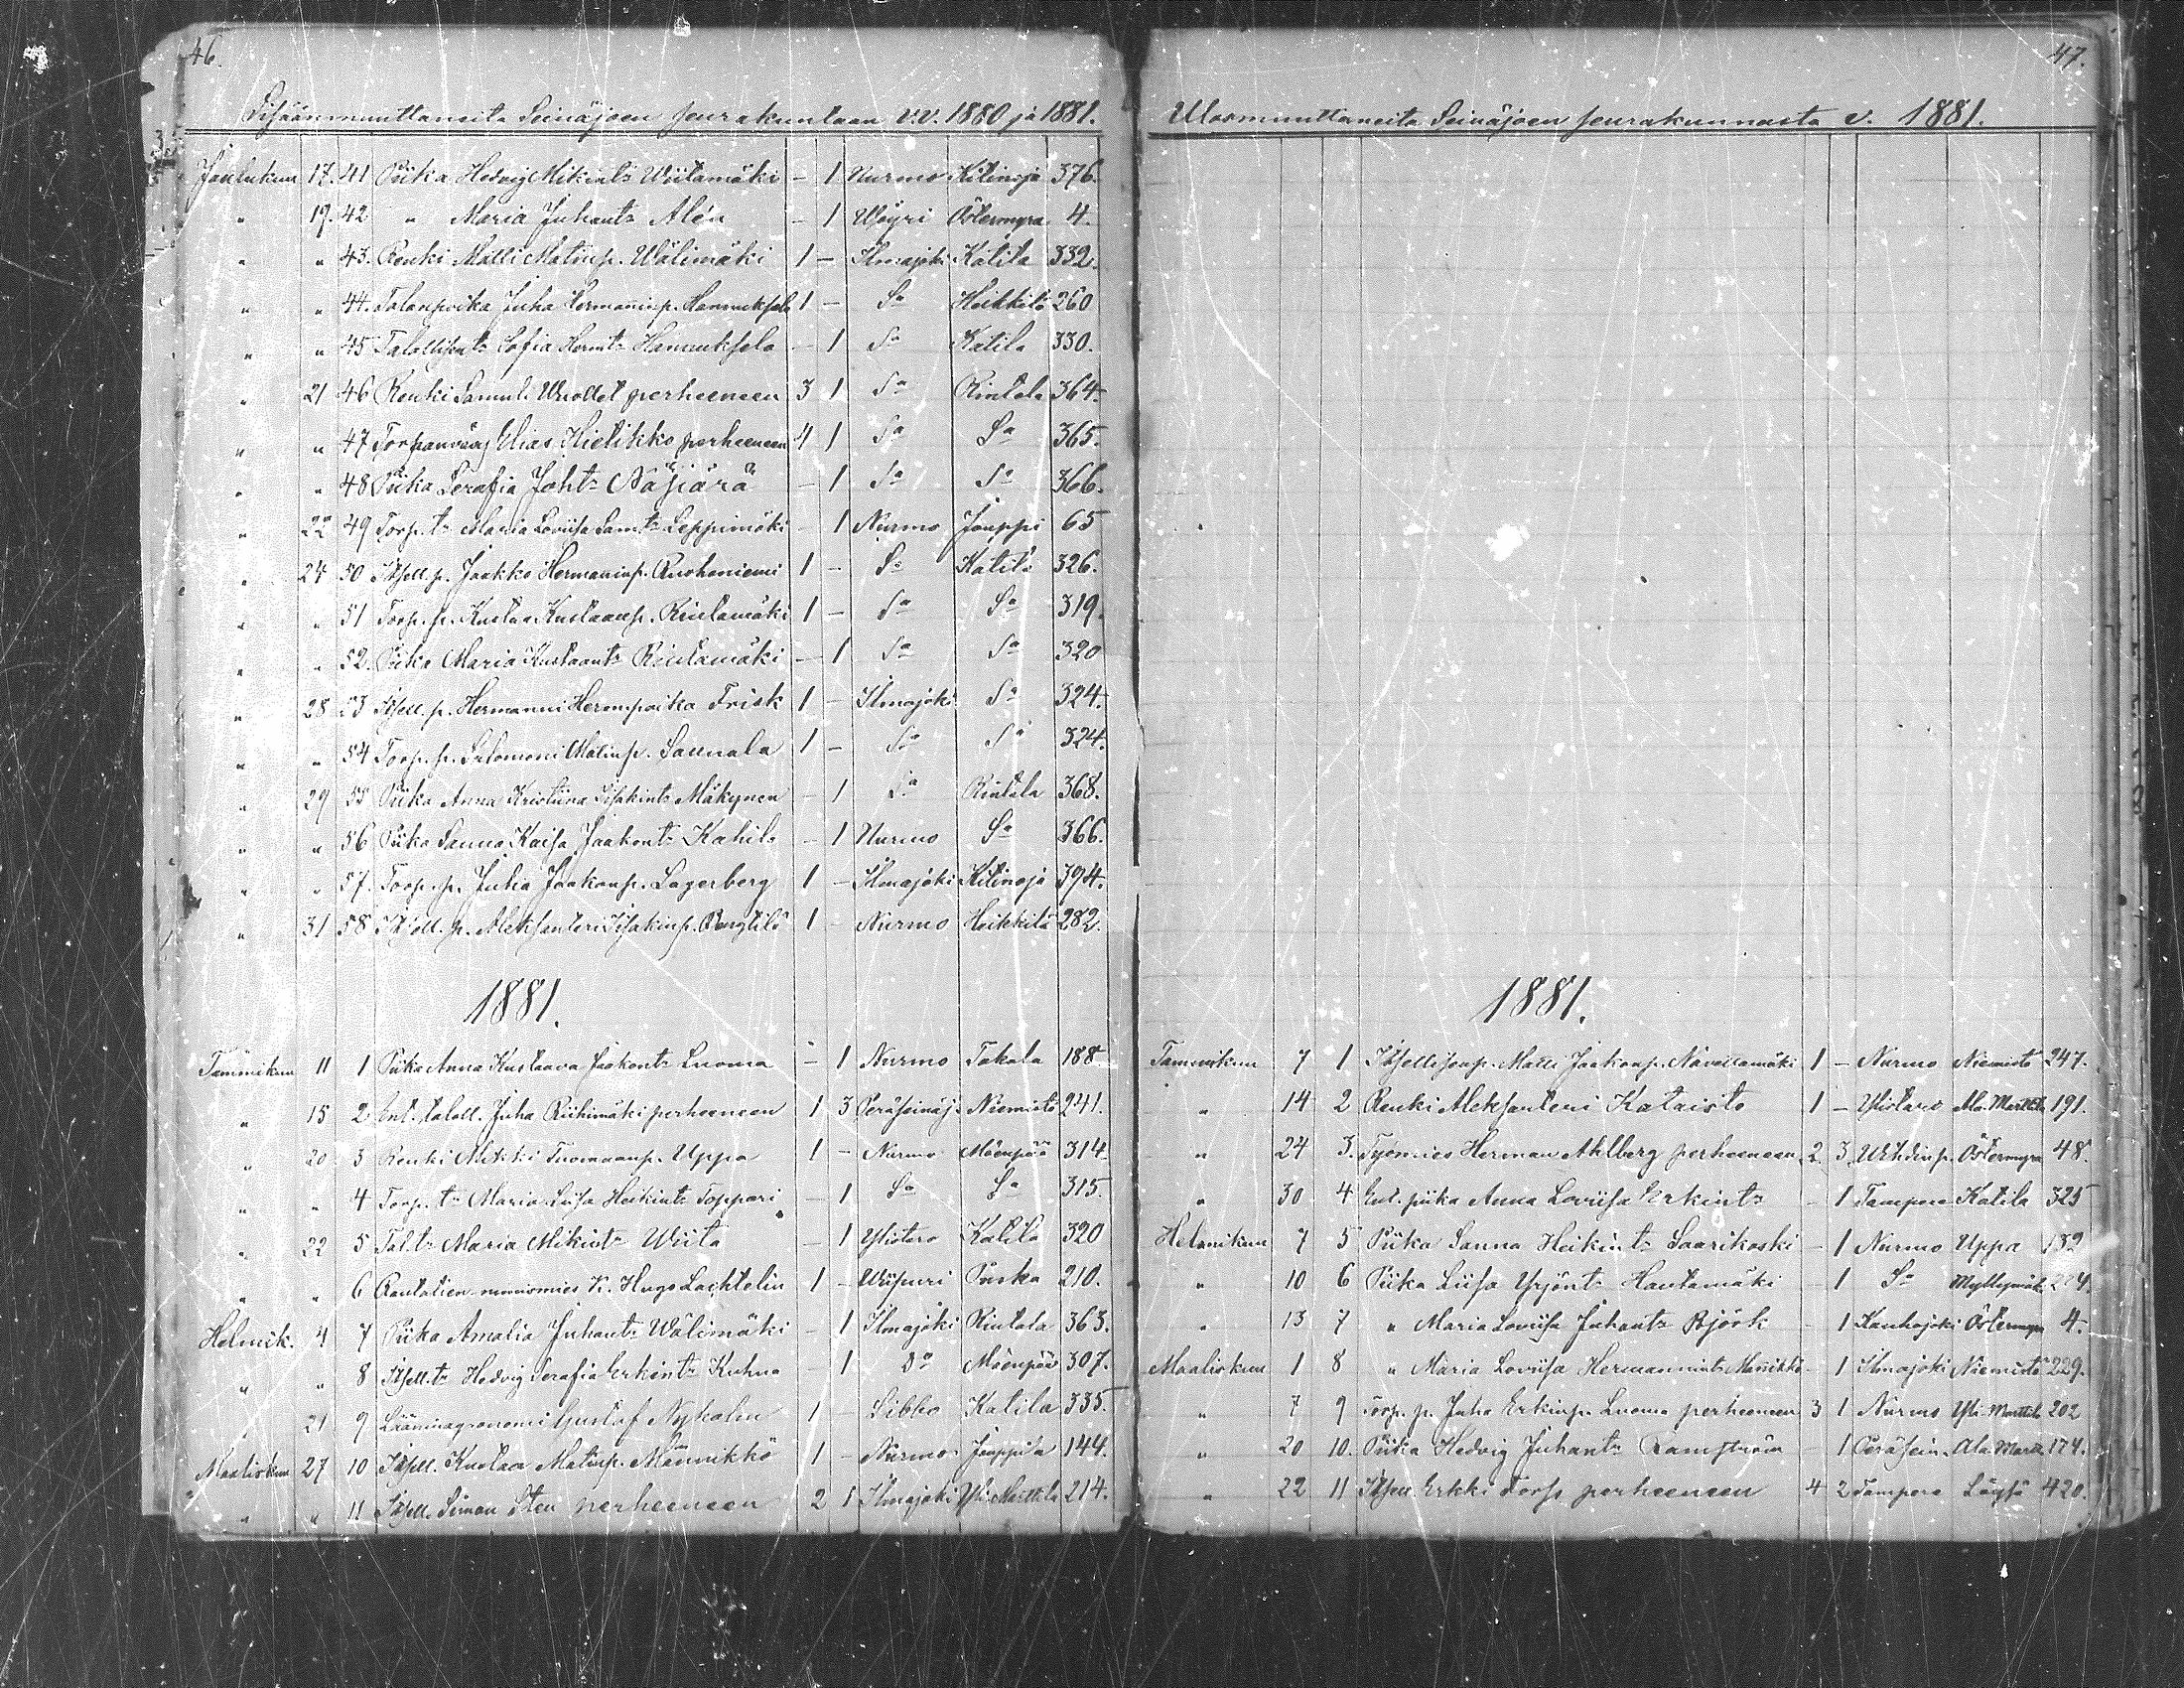 46.
Sisäänmuuttaneita Seinäjoen seurakuntaan v.v. 1880 ja 1881.
Joulukuu 17. 41 Piika Hedvig Mikint: Wiitamäki – 1 Nurmo Kitinoja 376.
" 19. 42 " Maria Juhant: Alén – 1 Wöyri Östermyra 4.
" " 43. Renki Matti Matinp. Wälimäki 1 – Ilmajoki Katila 332.
" " 44. Talonpoika Juha Hermanninp. Hannuksela 1 – So Heikkilä 260
" " 45 Talollisent: Sofia Hermt: Hannuksela – 1 So Katila 330.
" 21 46 Renki Samul. perheeneen 3 1 So Rintala 364.
" " 47 Torpanvaag Elias Hietikko perheeneen 4 1 So So 365.
" " 48 Piika Serafia Joht: – 1 So So 366.
" 22 49 Torp. t: Maria Loviisa Samt: Leppimäki – 1 Nurmo Jouppi 65
" 24 50 Itsell. p. Jaakko Hermanninp. Ruohoniemi 1 – So Katila 326.
" " 51 Torp. p. Kustaa Kustaanp. Rintamäki 1 – So So 319.
" " 52. Piika Maria Kustaant: Rintamäki – 1 So So 320
" 28 53 Itsell. p. Hermanni Herm.poika Frisk 1 – Ilmajoki So 324.
" " 54 Torp. p. Salomoni Matinp. Saunala 1 – So So 324.
" 29 55 Piika Anna Kristiina Iisakint: Mäkynen – 1 So Rintala 368.
" " 56 Piika Sanna Kaisa Jaakont: Kahila – 1 Nurmo So 366.
" " 57. Torp. p. Juha Jaakonp. Lagerberg 1 – Ilmajoki Kitinoja 394.
" 31 58 Itsell. p. Aleksanteri Iisakinp. 1 – Nurmo Heikkilä 282.
1881.
Tammikuu 11 1 Piika Anna Kustaava Jaakont: Luoma – 1 Nurmo Takala 188
" 15 2 Ent. taloll. Juha Riihimäki perheeneen 1 3 Peräseinäj. Niemistö 241.
" 20 3 Renki Mikki Tuomaanp. Uppa 1 – Nurmo Mäenpää 314
" " 4 Torp. t: Maria Liisa Heikint: Toppari – 1 So So 315.
" 22 5 Tal. t: Maria Mikint: Wiita – 1 Ylistaro Katila 320
" " 6 Rautatien K. Hugo Lachtelin 1 – Wiipuri 210.
Helmik. 4 7 Piika Amalia Juhant: Wälimäki – 1 Ilmajoki Rintala 363.
" " 8 Itsell. t: Hedvig Serafia Erkint: Kuhna – 1 Do Mäenpää 307.
" 21 9 Lääninagronomi Gustaf Nykolm 1 – Sibbo Katila 335.
Maaliskuu 27 10 Itsell. Kustaa Matinp. Männikkö 1 – Nurmo Jouppila 144.
" " 11 Itsell. Simon Sten perheeneen 2 1 Ilmajoki Yli Marttila 214.
47.
Ulosmuuttaneita Seinäjoen seurakunnasta v. 1881.
1881.
Tammikuu 7 1 Itsellisenp. Matti Jaakonp. 1 – Nurmo Niemistö 247.
" 14 2 Renki Aleksanteri Kataisto 1 – Ylistaro Ala Marttila 191.
" 24 3. Työmies Herman Ahlberg perheeneen 2. 3. Östermyra 48.
" 30 4 Ent. piika Anna Loviisa Erkint: – 1 Tampere Katila 325
Helmikuu 7 5 Piika Sanna Heikint: Saarikoski – 1 Nurmo Uppa 132
" 10 6 Piika Liisa Yrjönt: Hautamäki – 1 So Myllymäk.
" 13 7 " Maria Loviisa Juhant: Björk – 1 Kauhajoki Östermyra 4.
Maaliskuu 1 8 " Maria Loviisa Hermannint: Männikkö – 1 Ilmajoki Niemistö 229.
" 7 9 Torp. p. Juha Erkinp. Luoma perheeneen 3 1 Nurmo Yli Marttila 202
" 20 10. Piika Hedvig Juhant: Ramström 1 Peräsein. Ala Martt. 174.
" 22 11 Itsell. Erkki Torp perheeneen 4 2 Tampere Löysä 420.